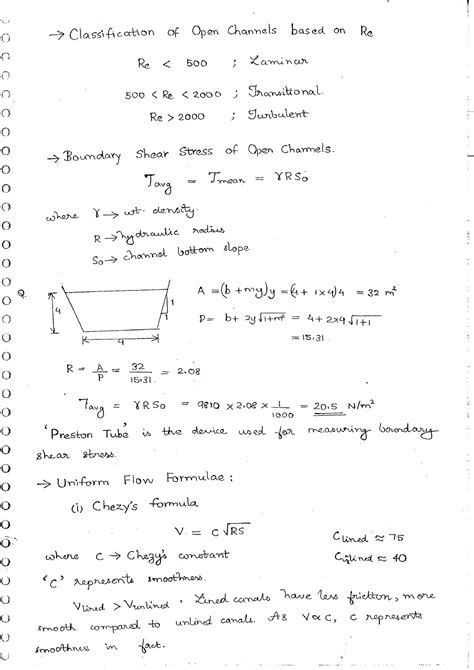 → Classification of Open Channels based on Re
Re < 500 ; Laminar
500 < Re < 2000 ; Transitional.
Re > 2000 ; Turbulent
→ Boundary Shear Stress of Open Channels.
Tavg = Tmean = γRSo
where γ → wt. density
R → hydraulic radius
So → channel bottom slope
Q.
4
1
1
4
A = (b + my)y = (4 + 1×4)4 = 32 m²
P = b + 2y√1+m² = 4 + 2×4√1+1
= 15.31.
R = A/P = 32/15.31 = 2.08
Tavg = γRSo = 9810 × 2.08 × 1/1000 = 20.5 N/m²
'Preston Tube' is the device used for measuring boundary
shear stress.
→ Uniform Flow Formulae :
(i) Chezy's formula
V = C√RS
where C → Chezy's constant
Clined ≈ 75
≈ 40
'C' represents smoothness.
Vlined > Vunlined . Lined canals have less friction, more
smooth compared to unlined canals. As V∝C, C represents
smoothness in fact.